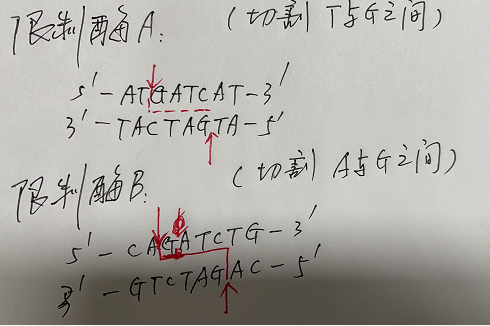 限制酶A: (切割 T与G之间)
5'-ATGATCAT-3'
3'-TACTAGTA-5'
限制酶B: (切割 A与G之间)
5'-CAGATCTG-3'
3'-GTCTAGAC-5'